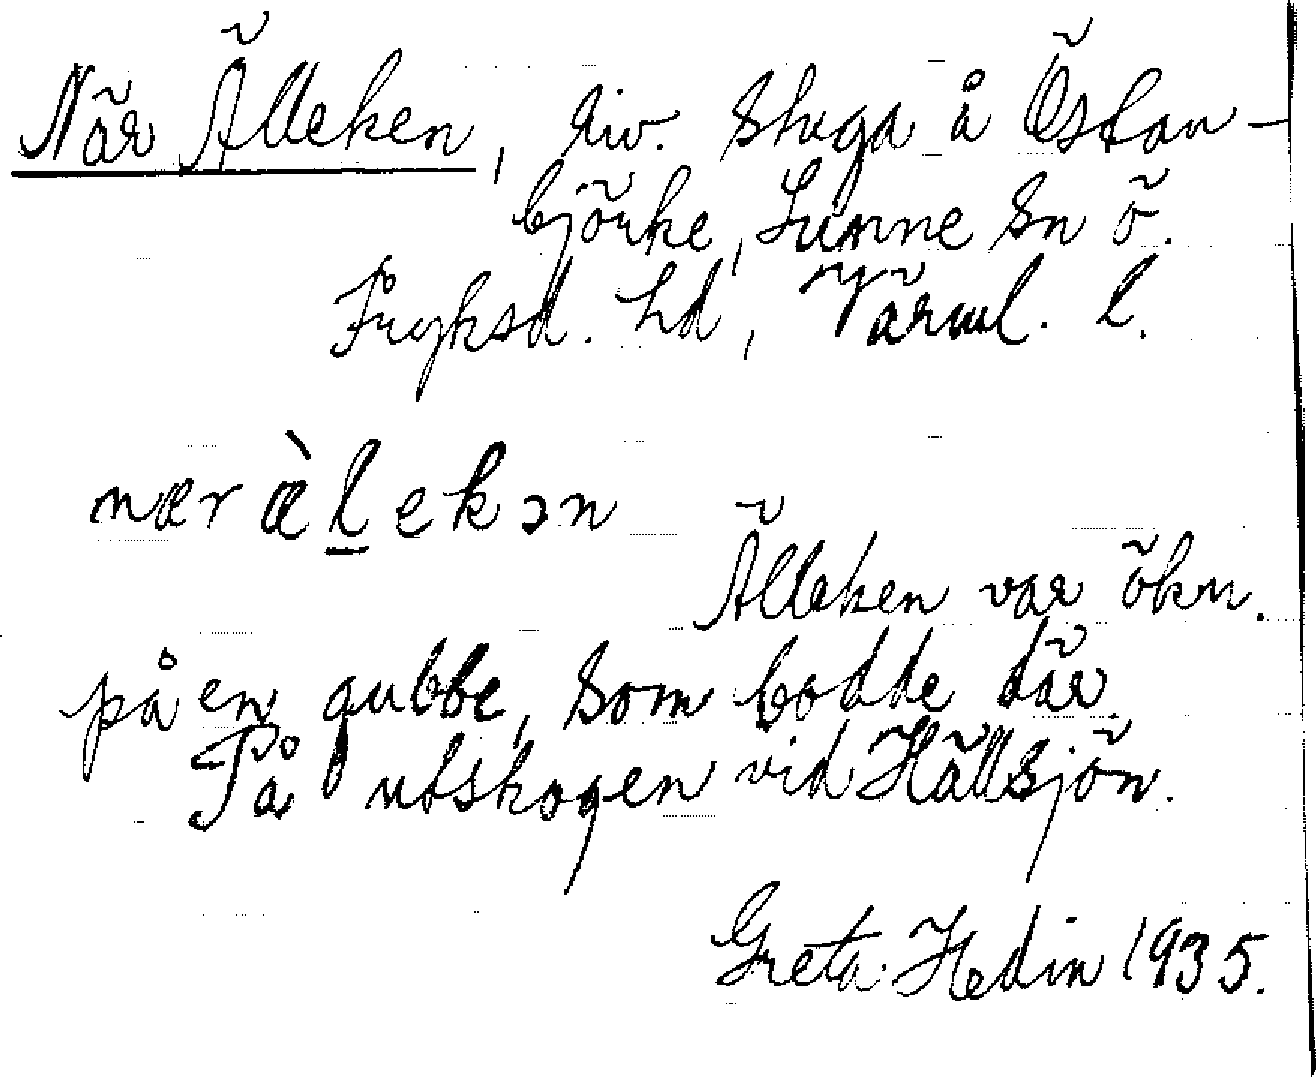 När Älleken, riv. stuga å Östan-
björke, Sunne sn ö.
Fryksd. hd, Värml. l.
nær æ̀l̠ekən
Älleken var ökn.
på en gubbe, som bodde där.
På utskogen vid Hällsjön.
Greta Hedin 1935.